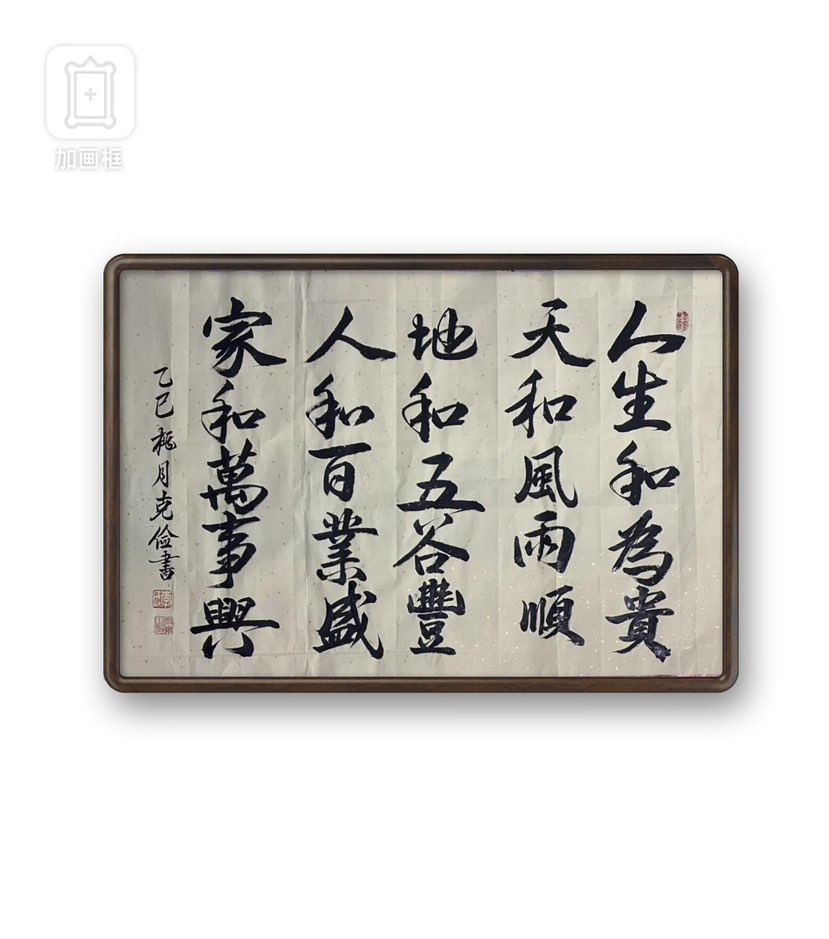 加画框
人生和為貴
天和風雨順
地和五谷豐
人和百業盛
家和萬事興
乙巳桃月克儉書